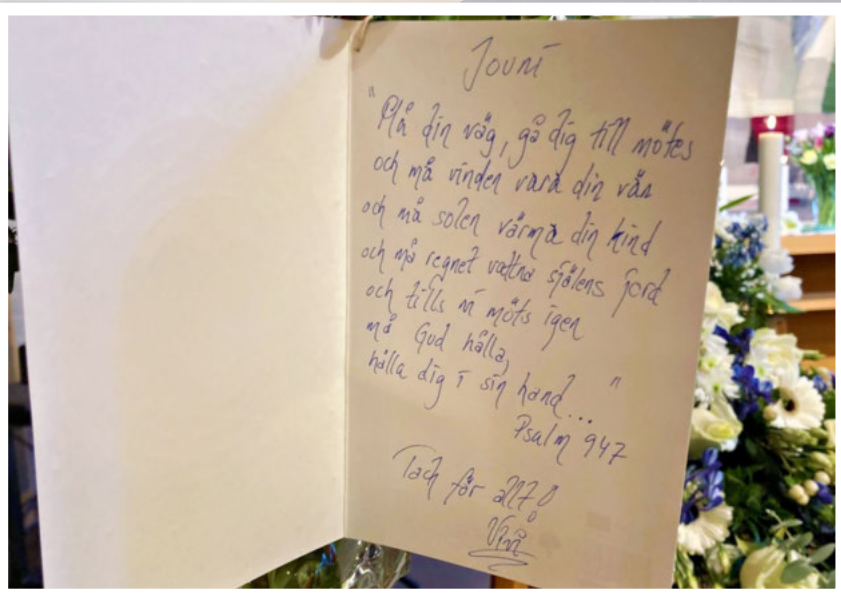 Jouni
"Må din väg, gå dig till mötes
och må vinden vara din vän
och må solen värma din kind
och må regnet vattna själens jord
och tills vi möts igen
må Gud hålla,
hålla dig i sin hand..."
Psalm 947
Tack för allt!